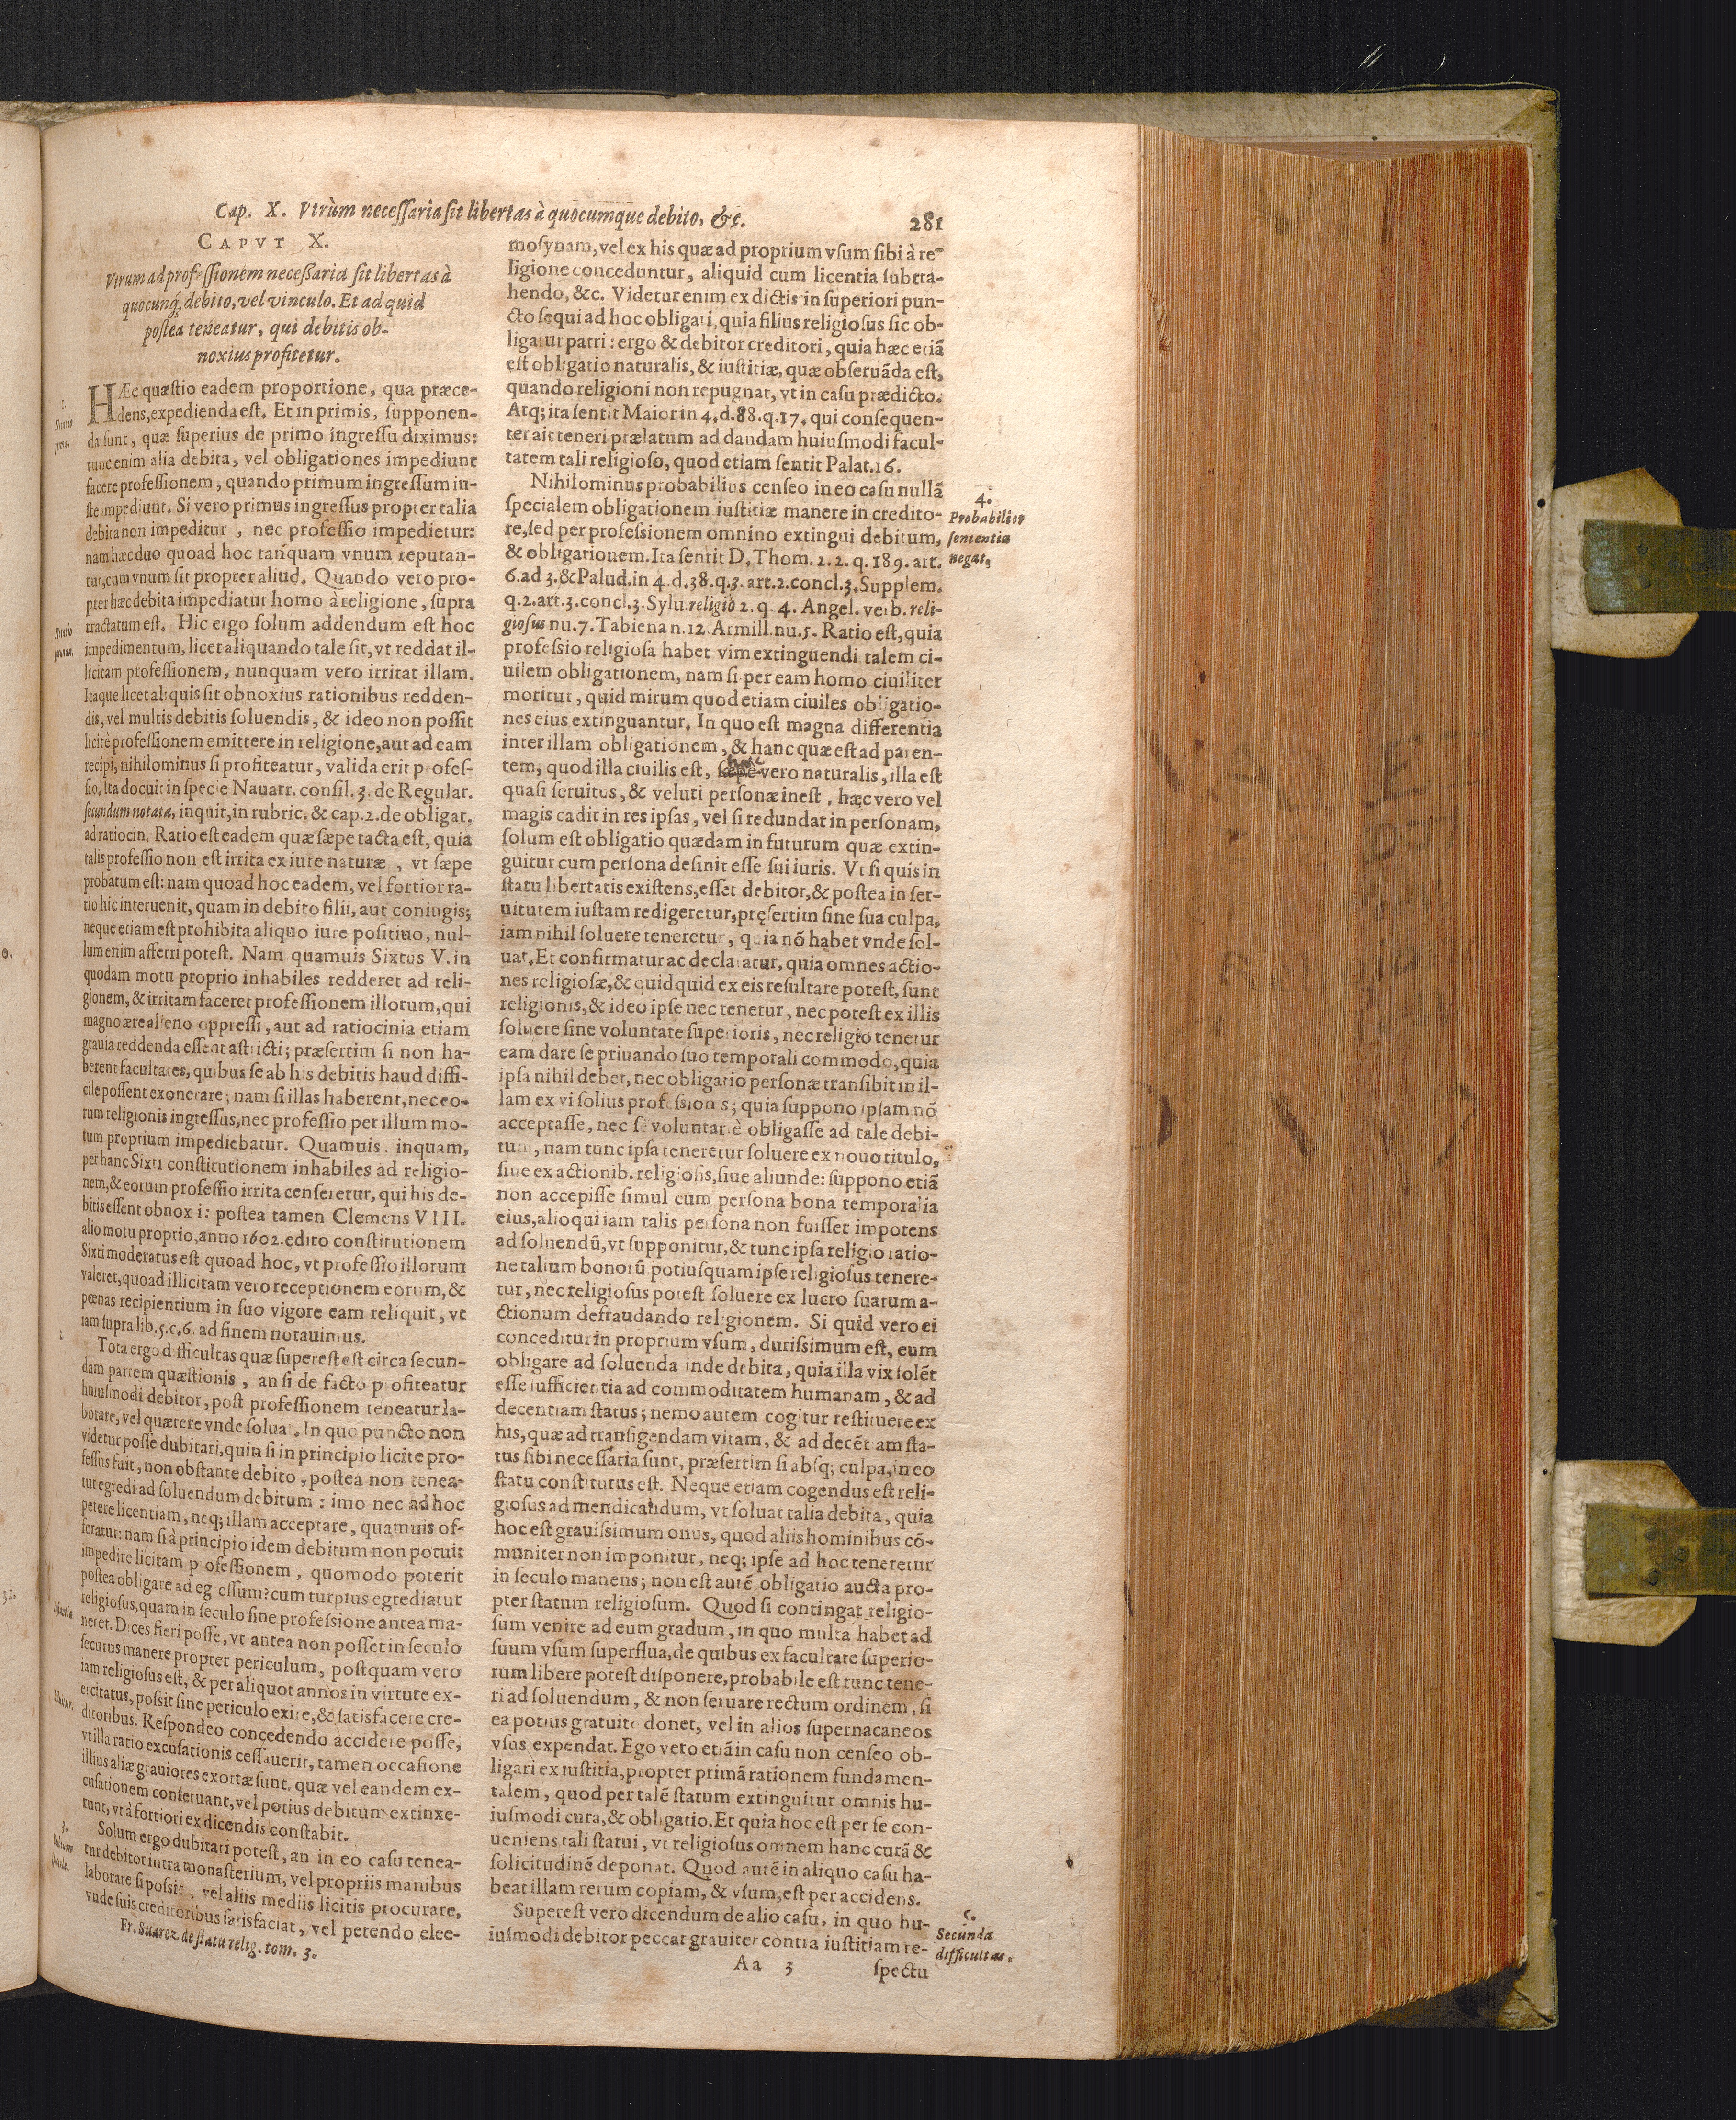 Cap. X. Vtrùm necessaria sit libertas à quocumque debito, &c.
281
CAPVT X.
Vtrum ad professionem necessaria sit libertas à
quocunq; debito, vel vinculo. Et ad quid
postea teneatur, qui debitis ob-
noxius profitetur.
1.
HÆc quæstio eadem proportione, qua præce-
dens, expedienda est. Et in primis, supponen-
da sunt, quæ superius de primo ingressu diximus:
tunc enim alia debita, vel obligationes impediunt
facere professionem, quando primum ingressum iu-
ste impediunt. Si vero primus ingressus propter talia
debita non impeditur, nec professio impedietur:
nam hæc duo quoad hoc tanquam vnum reputan-
tur, cum vnum sit propter aliud. Quando vero pro-
pter hæc debita impediatur homo à religione, supra
tractatum est. Hic ergo solum addendum est hoc
impedimentum, licet aliquando tale sit, vt reddat il-
licitam professionem, nunquam vero irritat illam.
Itaque licet aliquis sit obnoxius rationibus redden-
dis, vel multis debitis soluendis, & ideo non possit
licitè professionem emittere in religione, aut ad eam
recipi, nihilominus si profiteatur, valida erit profes-
sio, Ita docuit in specie Nauarr. consil. 3. de Regular.
secundum notata, inquit, in rubric. & cap. 2. de obligat.
ad ratiocin. Ratio est eadem quæ sæpe tacta est, quia
talis professio non est irrita ex iure naturæ, vt sæpe
probatum est: nam quoad hoc eadem, vel fortior ra-
tio hic interuenit, quam in debito filii, aut coniugis;
neque etiam est prohibita aliquo iure positiuo, nul-
lum enim afferri potest. Nam quamuis Sixtus V. in
quodam motu proprio inhabiles redderet ad reli-
gionem, & irritam faceret professionem illorum, qui
magno ære alieno oppressi, aut ad ratiocinia etiam
grauia reddenda essent astricti; præsertim si non ha-
berent facultates, quibus se ab his debitis haud diffi-
cile possent exonerare; nam si illas haberent, nec eo-
rum religionis ingressus, nec professio per illum mo-
tum proprium impediebatur. Quamuis, inquam,
per hanc Sixti constitutionem inhabiles ad religio-
nem, & eorum professio irrita censeretur, qui his de-
bitis essent obnoxii: postea tamen Clemens VIII.
alio motu proprio, anno 1602. edito constitutionem
Sixti moderatus est quoad hoc, vt professio illorum
valeret, quoad illicitam vero receptionem eorum, &
pœnas recipientium in suo vigore eam reliquit, vt
iam supra lib. 5. c. 6. ad finem notauimus.
2.
Tota ergo difficultas quæ superest est circa secun-
dam partem quæstionis, an si de facto profiteatur
huiusmodi debitor, post professionem teneatur la-
borare, vel quærere vnde soluat. In quo puncto non
videtur posse dubitari, quin si in principio licite pro-
fessus fuit, non obstante debito, postea non tenea-
tur egredi ad soluendum debitum: imo nec ad hoc
petere licentiam, neq; illam acceptare, quamuis of-
feratur: nam si à principio idem debitum non potuit
impedire licitam professionem, quomodo poterit
postea obligare ad egressum? cum turpius egrediatur
religiosus, quam in seculo sine professione antea ma-
neret. Dices fieri posse, vt antea non posset in seculo
securus manere propter periculum, postquam vero
iam religiosus est, & per aliquot annos in virtute ex-
ercitatus, possit sine periculo exire, & satisfacere cre-
ditoribus. Respondeo concedendo accidere posse,
vt illa ratio excusationis cessauerit, tamen occasione
illius aliæ grauiores exortæ sunt, quæ vel eandem ex-
cusationem conseruant, vel potius debitum extinxe-
runt, vt à fortiori ex dicendis constabit.
3.
Solum ergo dubitari potest, an in eo casu tenea-
tur debitor intra monasterium, vel propriis manibus
laborare si possit, vel aliis mediis licitis procurare,
vnde suis creditoribus satisfaciat, vel petendo elee-
Fr. Suarez de statu relig. tom. 3.
mosynam, vel ex his quæ ad proprium vsum sibi à re-
ligione conceduntur, aliquid cum licentia subtra-
hendo, &c. Videtur enim ex dictis in superiori pun-
cto sequi ad hoc obligari, quia filius religiosus sic ob-
ligatur patri: ergo & debitor creditori, quia hæc etiã
est obligatio naturalis, & iustitiæ, quæ obseruãda est,
quando religioni non repugnat, vt in casu prædicto.
Atq; ita sentit Maior in 4. d. 88. q. 17. qui consequen-
ter ait teneri prælatum ad dandam huiusmodi facul-
tatem tali religioso, quod etiam sentit Palat. 16.
Nihilominus probabilius censeo in eo casu nullã
specialem obligationem iustitiæ manere in credito-
re, sed per professionem omnino extingui debitum,
& obligationem. Ita sentit D. Thom. 2. 2. q. 189. art.
6. ad 3. & Palud. in 4. d. 38. q. 3. art. 2. concl. 3. Supplem.
q. 2. art. 3. concl. 3. Sylu. religio 2. q. 4. Angel. verb. reli-
giosus nu. 7. Tabiena n. 12. Armill. nu. 5. Ratio est, quia
professio religiosa habet vim extinguendi talem ci-
uilem obligationem, nam si per eam homo ciuiliter
moritur, quid mirum quod etiam ciuiles obligatio-
nes eius extinguantur. In quo est magna differentia
inter illam obligationem, & hanc quæ est ad paren-
haec
tem, quod illa ciuilis est, sæpè vero naturalis, illa est
quasi seruitus, & veluti personæ inest, hæc vero vel
magis cadit in res ipsas, vel si redundat in personam,
solum est obligatio quædam in futurum quæ extin-
guitur cum persona desinit esse sui iuris. Vt si quis in
statu libertatis existens, esset debitor, & postea in ser-
uitutem iustam redigeretur, pręsertim sine sua culpa,
iam nihil soluere teneretur, quia nõ habet vnde sol-
uat. Et confirmatur ac declaratur, quia omnes actio-
nes religiosæ, & quidquid ex eis resultare potest, sunt
religionis, & ideo ipse nec tenetur, nec potest ex illis
soluere sine voluntate superioris, nec religio tenetur
eam dare se priuando suo temporali commodo, quia
ipsa nihil debet, nec obligatio personæ transibit in il-
lam ex vi solius professionis; quia suppono ipsam nõ
acceptasse, nec se voluntariè obligasse ad tale debi-
tum, nam tunc ipsa teneretur soluere ex nouo titulo,
siue ex actionib. religiosis, siue aliunde: suppono etiã
non accepisse simul cum persona bona temporalia
eius, alioqui iam talis persona non fuisset impotens
ad soluendũ, vt supponitur, & tunc ipsa religio ratio-
ne talium bonorũ potiusquam ipse religiosus tenere-
tur, nec religiosus potest soluere ex lucro suarum a-
ctionum defraudando religionem. Si quid vero ei
conceditur in proprium vsum, durissimum est, eum
obligare ad soluenda inde debita, quia illa vix solẽt
esse sufficientia ad commoditatem humanam, & ad
decentiam status; nemo autem cogitur restituere ex
his, quæ ad transigendam vitam, & ad decẽtiam sta-
tus sibi necessaria sunt, præsertim si absq; culpa, in eo
statu constitutus est. Neque etiam cogendus est reli-
giosus ad mendicandum, vt soluat talia debita, quia
hoc est grauissimum onus, quod aliis hominibus cõ-
muniter non imponitur, neq; ipse ad hoc teneretur
in seculo manens; non est autẽ obligatio aucta pro-
pter statum religiosum. Quod si contingat religio-
sum venire ad eum gradum, in quo multa habet ad
suum vsum superflua, de quibus ex facultate superio-
rum libere potest disponere, probabile est tunc tene-
ri ad soluendum, & non seruare rectum ordinem, si
ea potius gratuito donet, vel in alios supernacaneos
vsus expendat. Ego vero etiã in casu non censeo ob-
ligari ex iustitia, propter primã rationem fundamen-
talem, quod per talẽ statum extinguitur omnis hu-
iusmodi cura, & obligatio. Et quia hoc est per se con-
ueniens tali statui, vt religiosus omnem hanc curã &
solicitudinẽ deponat. Quod autẽ in aliquo casu ha-
beat illam rerum copiam, & vsum, est per accidens.
Superest vero dicendum de alio casu, in quo hu-
iusmodi debitor peccat grauiter contra iustitiam re-
Aa 3
spectu
4.
Probabilior
sententia
negat.
5.
Secunda
difficultas.